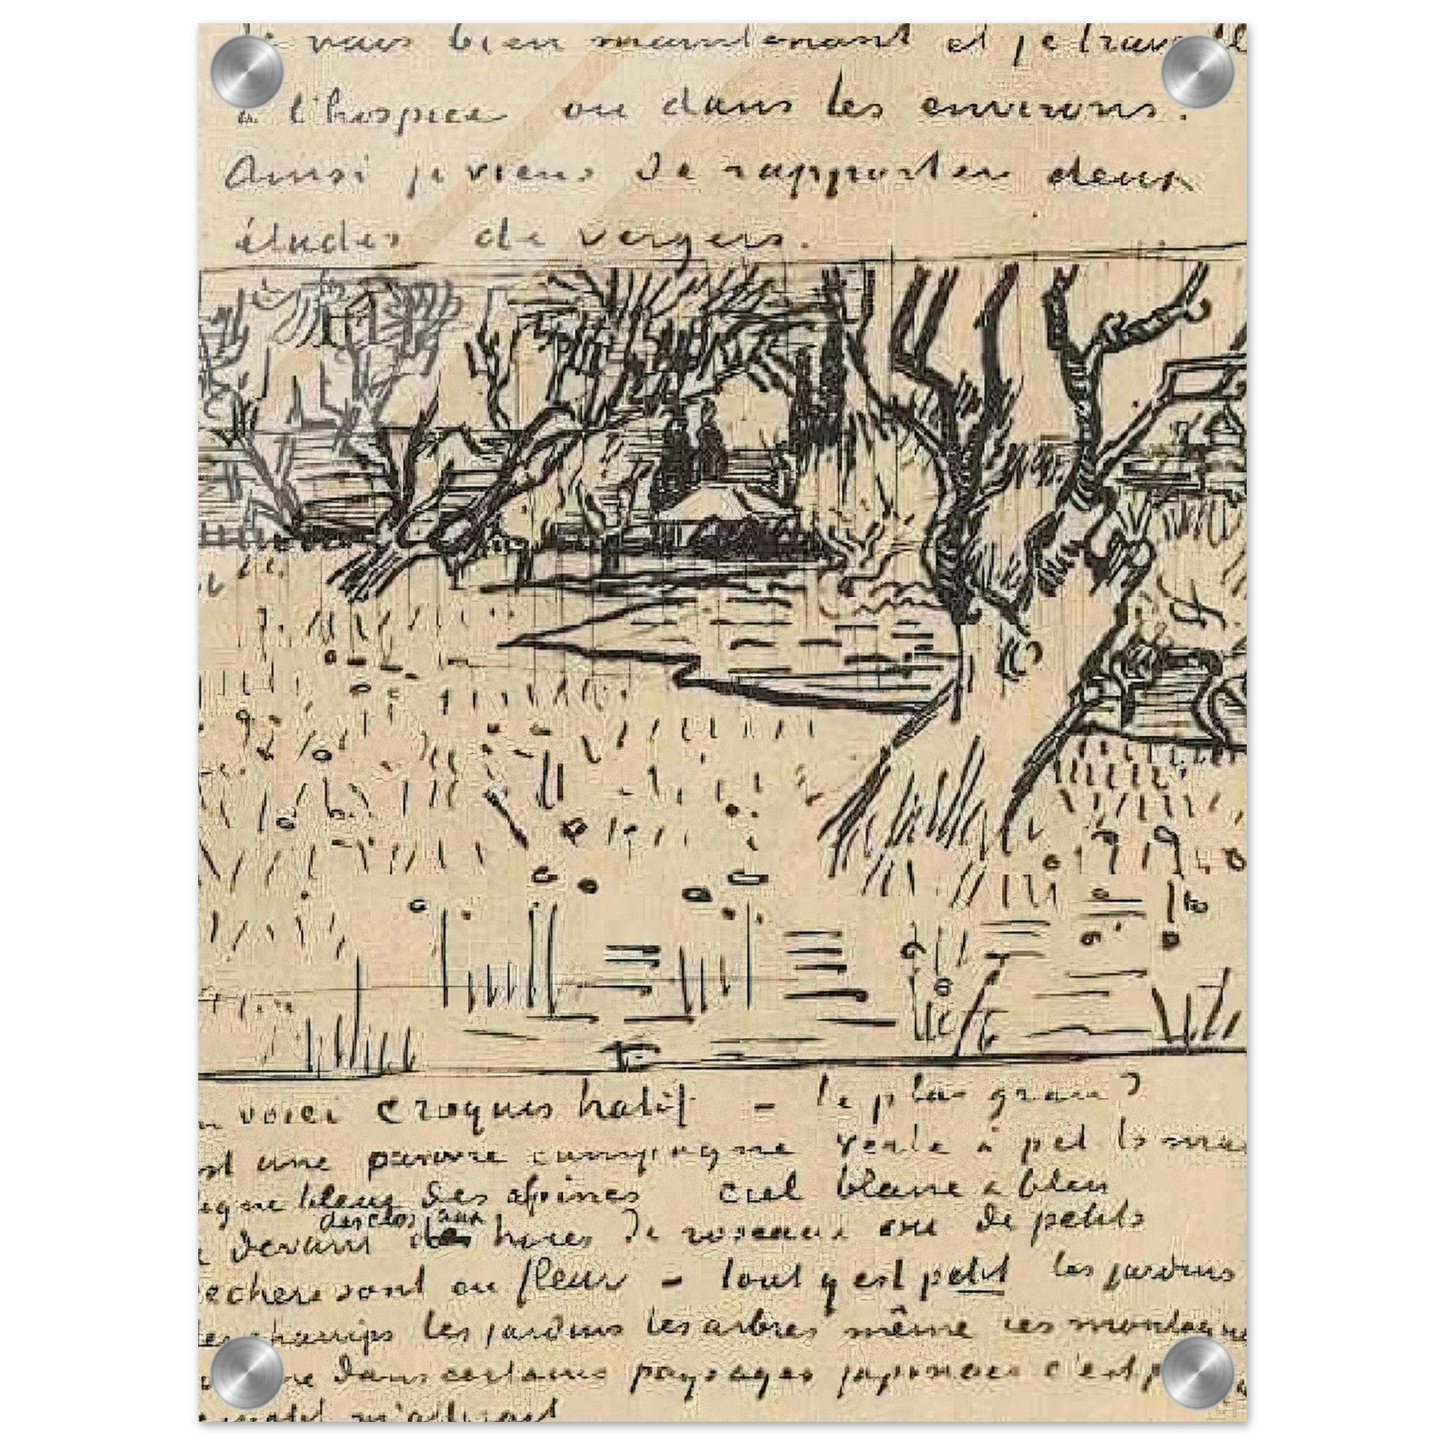 Je vais bien maintenant et je travaill
à l'hospice ou dans les environs.
Ainsi je viens de rapporter deux
études de vergers.
voici croquis hatif – le plus grand
est une pauvre campagne verte à pet ts mas
igne bleue des alpines ciel blanc & bleu
des clos aux
devant haies de roseaux ou de petits
echers sont en fleur – tout y est petit les jardins
les champs les jardins les arbres même ces montagne
me dans certains paysages japonais c'est p
motif m'attirait